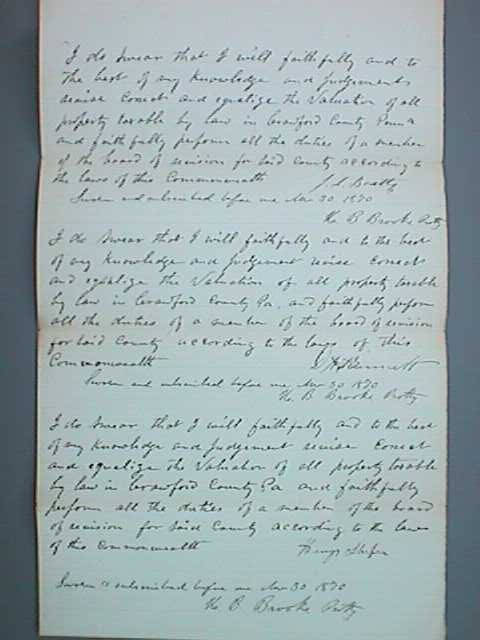 I do swear that I will faithfully and to
the best of my knowledge and judgements
revise correct and equalize the Valuation of all
property taxable by law in Crawford County Penna
and faithfully perform all the duties of a member
of the board of revision for said County according to
the laws of this Commonwealth
Sworn and subscribed before me Nov 30, 1870
B Brooke Protty
I do swear that I will faithfully and to the best
of my knowledge and judgement revise correct
and equalize the Valuation of all property taxable
by law in Crawford County Pa. and faithfully perform
all the duties of a member of the board of revision
for said County according to the laws of this
Commonwealth
Sworn and subscribed before me, Nov 30, 1870
B Brooke Protty
I do swear that I will faithfully and to the best
of my knowledge and judgement revise correct
and equalize the Valuation of all property taxable
by law in Crawford County Pa and faithfully
perform all the duties of a member of the board
of revision for said County according to the laws
of this Commonwealth Henry
Sworn & subscribed before me Nov 30, 1870
B Brooke Protty